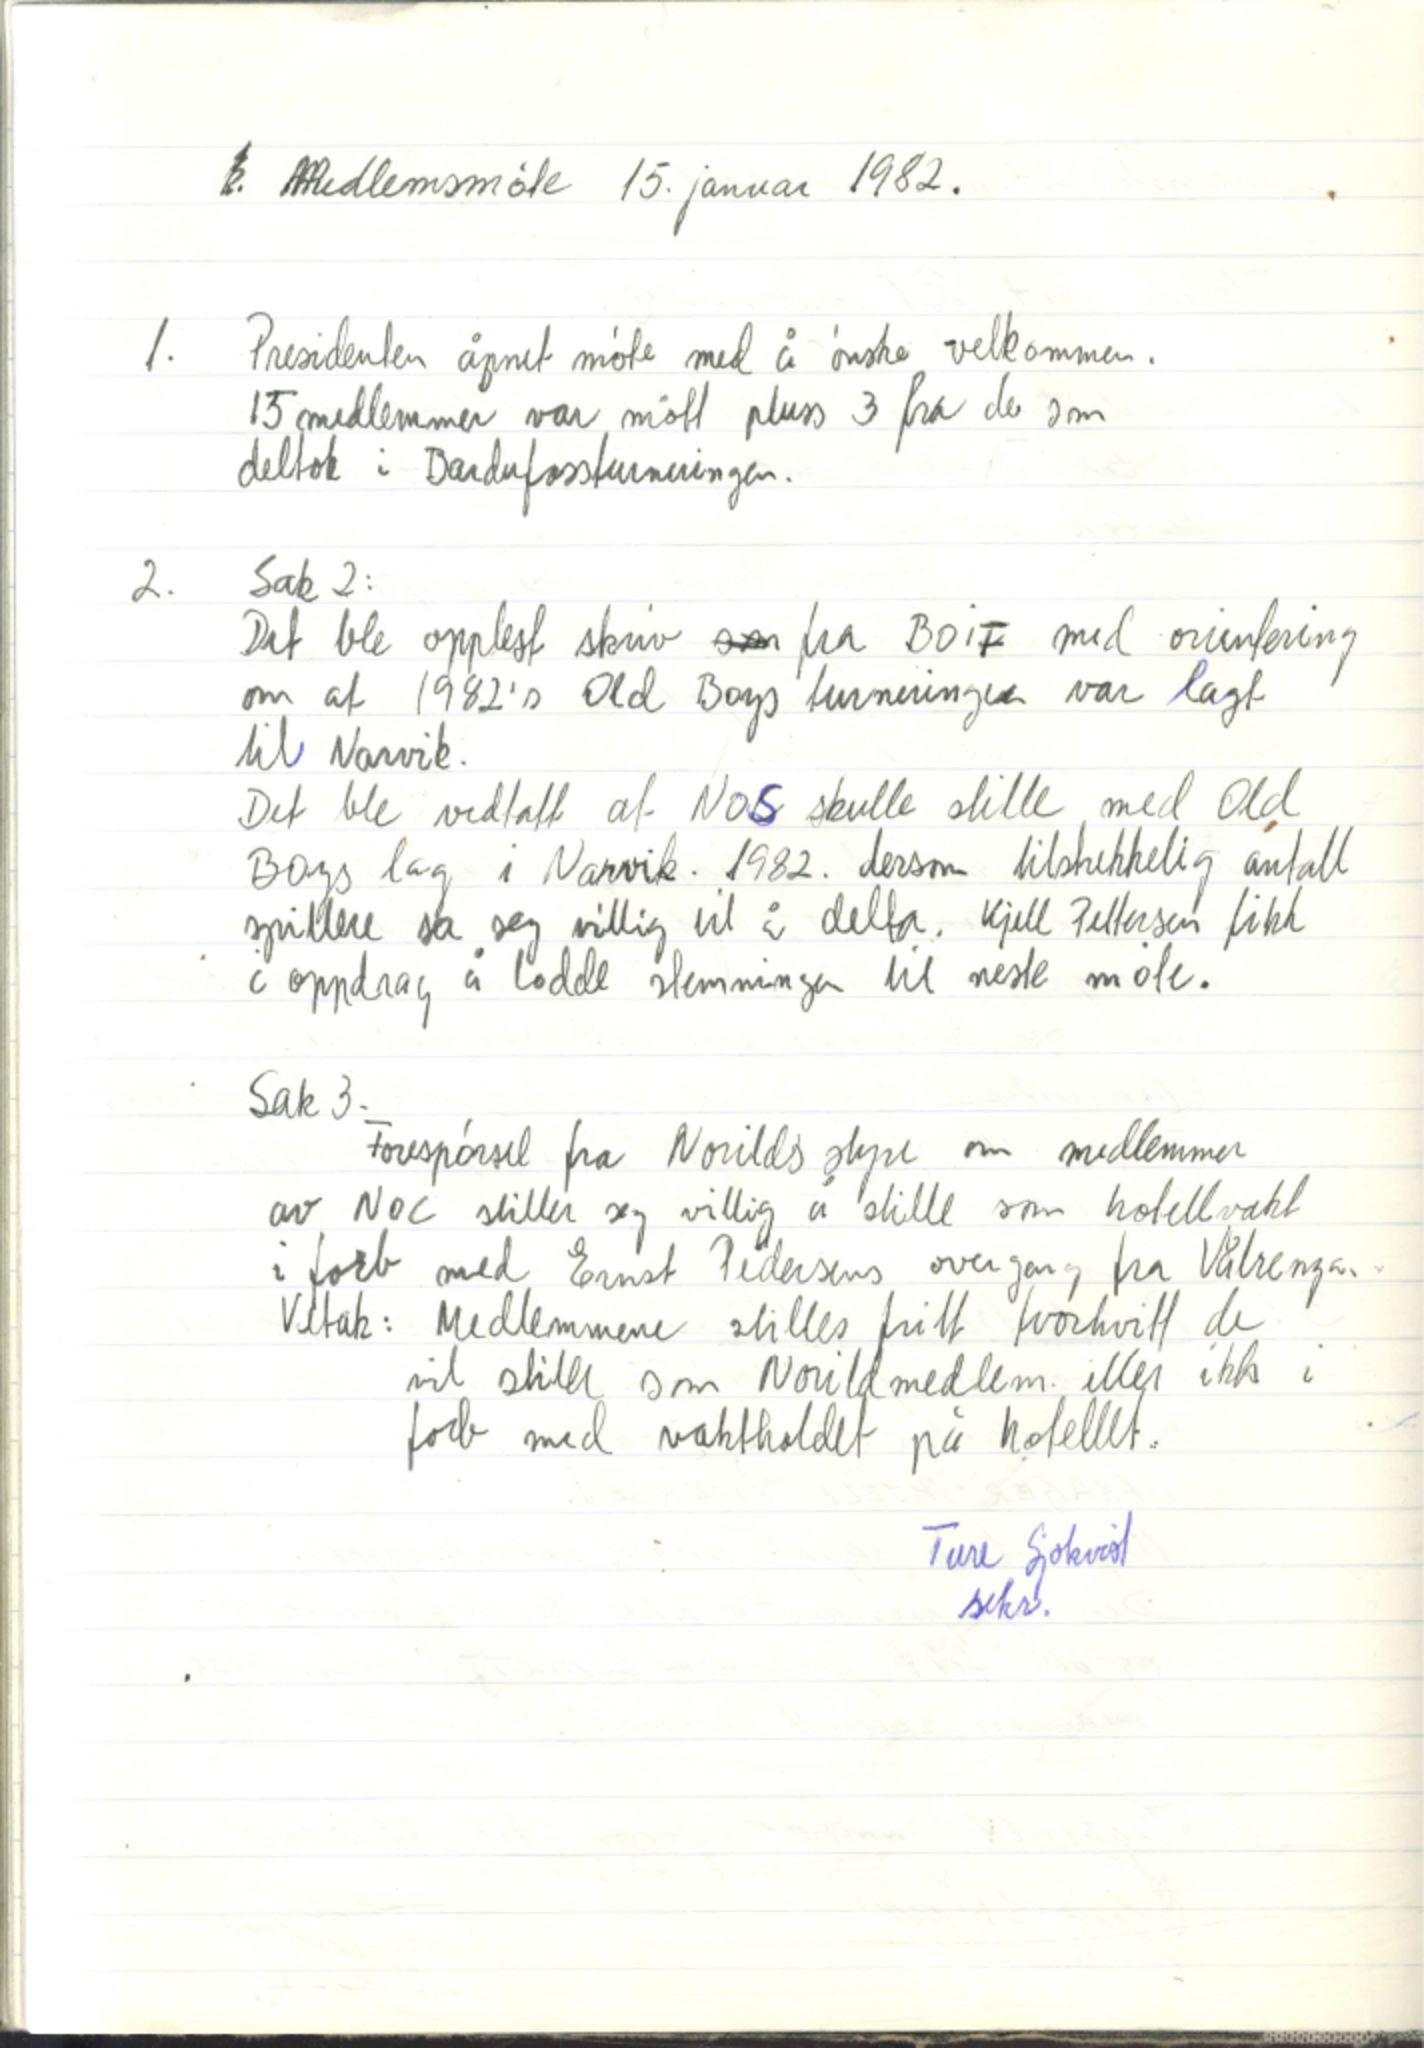 Medlemsmöte 15. januar 1982.
1. Presidenten åpnet möte med å önske velkommen.
15 medlemmer var mött pluss 3 fra de som
deltok i Bardufossturneringen.
2. Sak 2:
Det ble opplest skriv som fra BOIF med orientering
om at 1982's Old Boys turneringen var lagt
til Narvik.
Det ble vedtatt at NOS skulle stille med Old
Boys lag i Narvik. 1982. dersom tilstrekkelig antall
spillere sa seg villig til å delta. Kjell Pettersen fikk
i oppdrag å lodde stemningen til neste möte.
Sak 3.
Forespörsel fra Norilds styre om medlemmer
av NOC stiller seg villig å stille som hotellvakt
i forb med Ernst Pedersens overgang fra Vålrenga.
Vetak: Medlemmene stilles fritt hvorhvitt de
vil stille som Norildmedlem. eller ikke i
forb med vaktholdet på hotellet.
Ture Sjökvist
sekr.